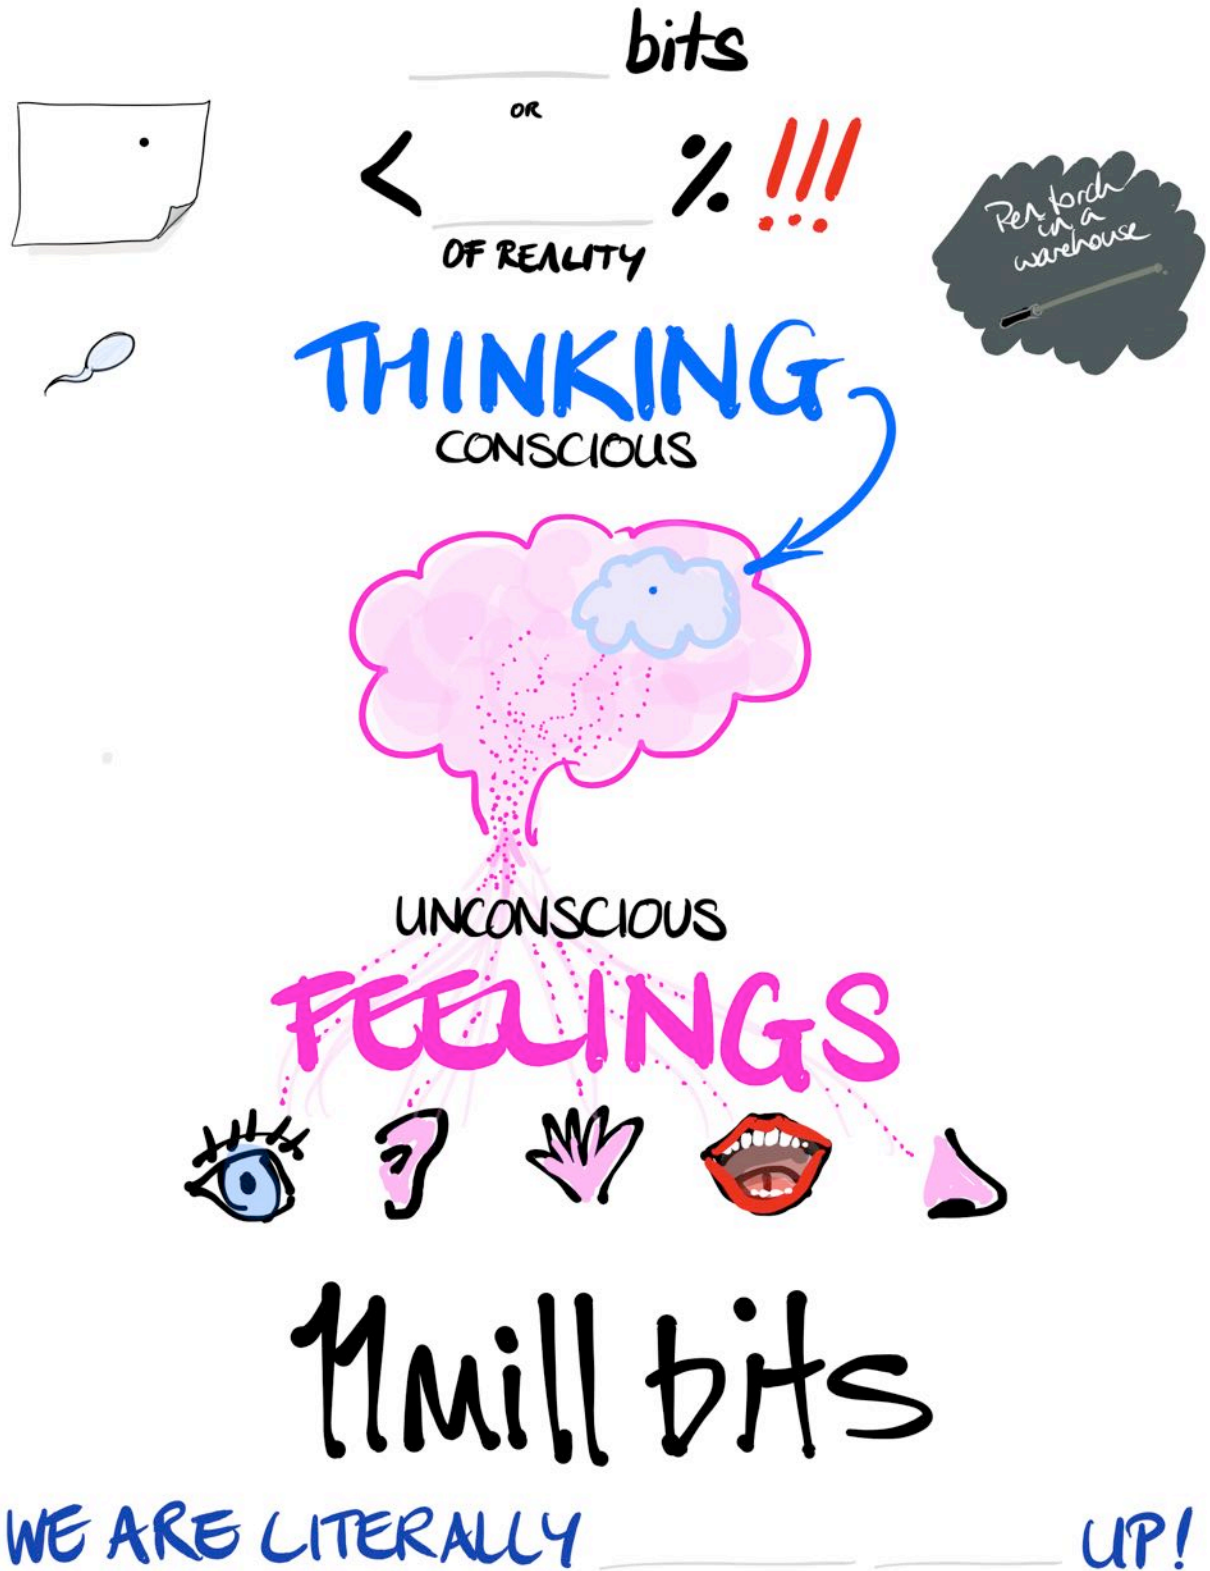 bits
OR
< %!!!
OF REALITY
Pen torch
in a
warehouse
THINKING
CONSCIOUS
UNCONSCIOUS
FEELINGS
11mill bits
WE ARE LITERALLY UP!